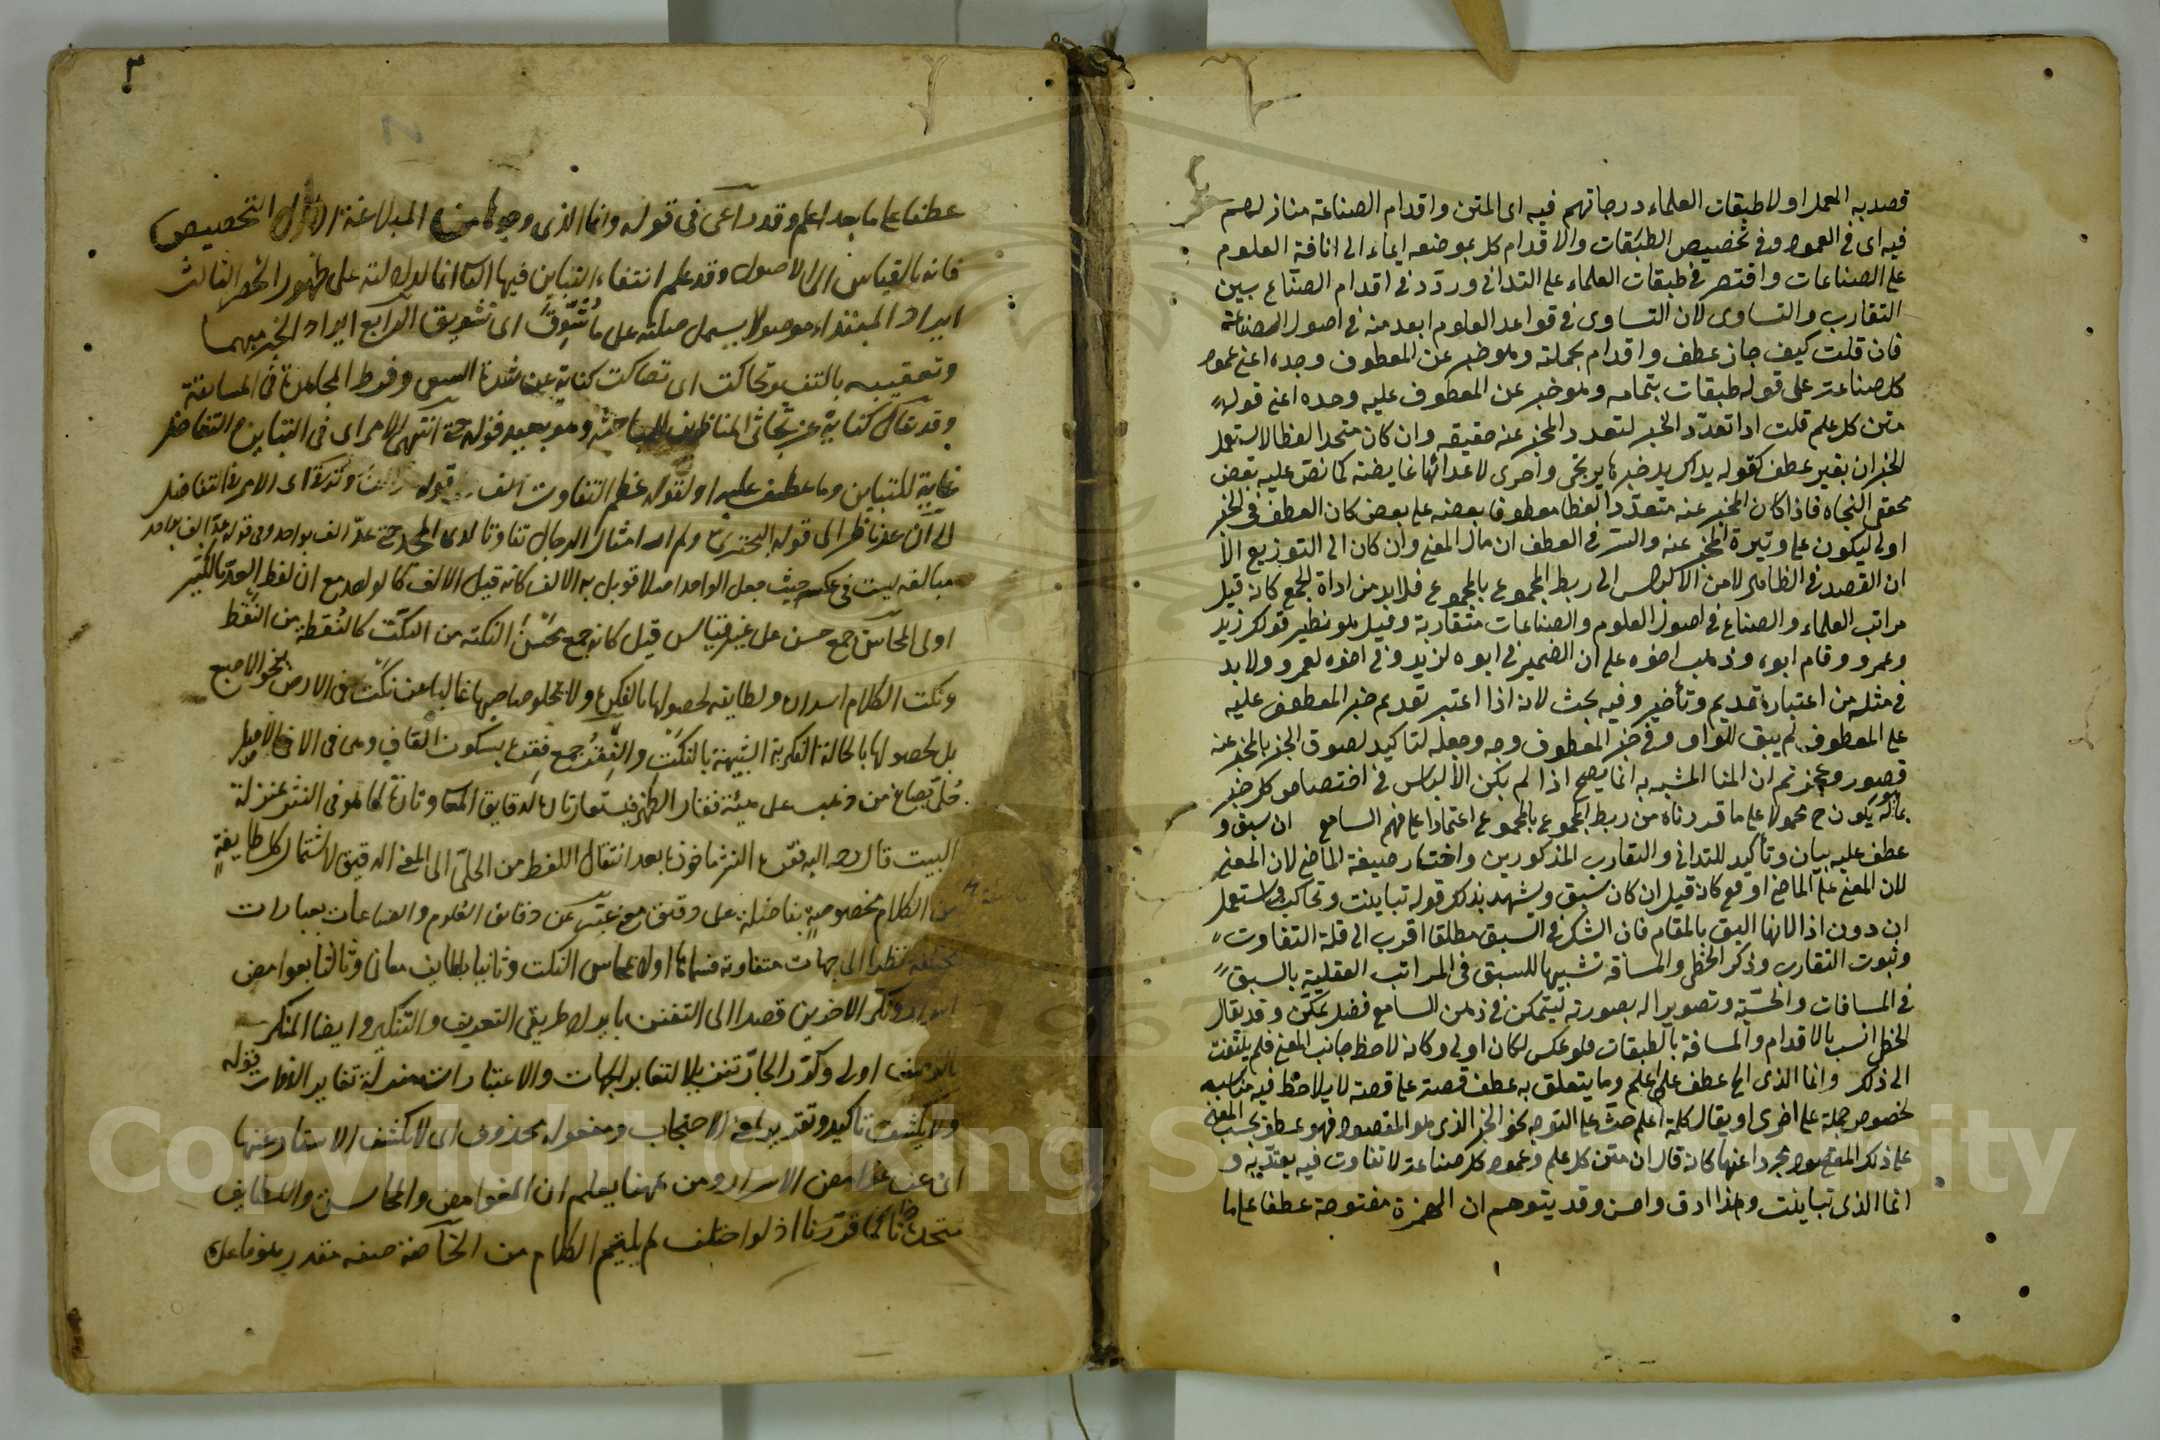 قصد به العمل اولا طبقات العلماء درجاتهم فيه اى المتن واقدام الصناعة منازلهم
فيه اى فى العمود وفى تخصيص الطبقات والاقدام كل بموضعه ايماء الى انافة العلوم
على الصناعات واقتصر فى طبقات العلماء على التدانى وردد فى اقدام الصناع بين
التقارب والتساوى لان التساوى فى قواعد العلوم ابعد منه فى اصول الصناعة
فان قلت كيف جاز عطف واقدام بجملته وهو خبر عن المعطوف وحده اعنى عمود
كل صناعة على قوله طبقات بتمامه وهو خبر عن المعطوف عليه وحده اعنى قوله
متن كل علم قلت اذا تعدد الخبر لتعدد المخبر عنه حقيقه وان كان متحدا لفظا لا يستعمل
الخبران بغير عطف كقوله يداك يد خيرها يرتجى واخرى لاعدائها غايضة كما نص عليه بعض
محققى النحاه فاذا كان المخبر عنه متعددا لفظا معطوفا بعضه على بعض كان العطف فى الخبر
اولى ليكون على وتيرة المخبر عنه والسر فى العطف ان مآل المعنى وان كان الى التوزيع الا
ان القصد فى الظاهر الى ربط المجموع بالمجموع فلا بد من اداة الجمع كانه قيل
مراتب العلماء والصناع فى اصول العلوم والصناعات متقاربة وقيل هو نظير قولك زيد
وعمرو وقام ابوه وذهب اخوه على ان الضمير فى ابوه لزيد وفى اخوه لعمرو ولا بد
فى مثله من اعتبار تقديم وتأخير وفيه بحث لانه اذا اعتبر تقديم خبر المعطوف عليه
على المعطوف لم يبق للواو فى خبر المعطوف وجه وجعله لتاكيد لصوق الخبر بالمخبر عنه
قصور وعجز ثم ان المشبه به انما يصح اذا لم يكن الالباس فى اختصاص كل خبر
بما له يكون ح محمولا على ما قدرناه من ربط المجموع بالمجموع اعتمادا على فهم السامع ان سبق و
عطف عليه بيان وتأكيد للتدانى والتقارب المذكورين واختار صيغة الماضى لان المعنى
لان المعنى على الماضى اوقع كانه قيل ان كان سبق ويشهد بذلك قوله تباينت وتحاكت واستعمل
ان دون اذا لانها اليق بالمقام فان الشك فى السبق مطلقا اقرب الى قلة التفاوت
وثبوت التقارب وذكر الخطى والمسافة تشبيها للسبق فى المراتب العقلية بالسبق
فى المسافات والحسية وتصويرا له بصورته ليتمكن فى ذهن السامع فضل تمكن وقد يقال
الخطى انسب بالاقدام والمسافة بالطبقات فلو عكس لكان اولى وكانه لاحظ جانب المعنى فلم يلتفت
الى ذلك وانما الذى الخ عطف على اعلم وما يتعلق به عطف قصة على قصة لا يلاحظ فيه مناسبه
لخصوص جملة على اخرى او يقال كلمة اعلم حث على التوجه نحو الخبر الذى هو المقصود فهو عطف بحسب المعنى
على ذلك المقصود مجردا عنها كانه قال ان متن كل علم وعمود كل صناعة لا تفاوت فيه يعتد به و
انما الذى تباينت وهذا ادق واحسن وقد يتوهم ان الهمزة مفتوحة عطفا على ما
٣
عطفا على ما بعد اعلم وقد راعى فى قوله وانما الذى وجوها من البلاغة الاول التخصيص
فانه بالقياس الى الاصول وقد علم انتفاء التباين فيها الثانى لدلالته على ظهور الحصر الثالث
ايراد المبتداء موصولا يشمل صلته على ما شوق اى تشويق الرابع ايراد الخبر مبهما
وتعقيبه بالتفسير تحاكت اى تصاكت كناية عن شدة السعى وفرط المجاهدة فى المسابقة
وقد يقال كناية عن تجاثى المناظرين للمباحثه وهو بعيد قوله حتى انتهى الامر اى فى التباين والتفاضل
غاية للتباين وما عطف عليه او لقوله عظم التفاوت قوله اى الامر فى التفاضل
الى ان عد ناظر الى قوله البحترى ولم ار امثال الرجال تفاوتا لدى المجد حتى عد الف بواحد وفى قوله عد الف بواحد
مبالغه ليست فى عكسه حيث جعل الواحد اصلا قوبل به الالف كانه قيل الالف كالواحد مع ان لفظ العد بالكثير
اولى المحاسن جمع حسن على غير قياس قيل كانه جمع محسن النكتة من النكت كالنقطة من النقط
ونكت الكلام اسراره ولطايفه لحصولها بالفكر ولا يخلو صاحبها غالبا عن نكت فى الارض بنحو الاصبع
بل لحصولها بالحالة الفكرية الشبيهة بالنكت والفقر جمع فقرة بسكون القاف وهى فى الاصل
حلى يصاغ من ذهب على هيئة فقار الظهر فيستعار تارة لدقايق المعانى وتارة لما هو فى النثر بمنزلة
البيت قال رحمه الله فقرة النثر ماخوذة بعد انتقال اللفظ من الحلى الى المعنى الدقيق لاشتمال كل طايفة
من الكلام مخصوصة بفاضلة على دقيق معنى عبر عن دقايق العلوم والصناعات بعبارات
مختلفة نظرا الى جهات متفاوتة فسماها اولا محاسن النكت وثانيا لطايف معان وثالثا غوامض
اسرار ونكر الاخيرين قصدا الى التفنن بايراد طريقى التعريف والتنكير وايضا المنكر
اولى وكرر الجار تنزيلا لتغاير الجهات والاعتبارات منزلة تغاير الذوات قوله
ولا يكشف تاكيد وتقرير لمعنى الاحتجاب ومفعوله محذوف اى لا يكشف الاستار عنها
اى عن غوامض الاسرار ومن ههنا يعلم ان الغوامض والمحاسن واللطايف
متحدة ذاتا كما قررنا اذ لو اختلف لم يلتئم الكلام من الخاصة صفه مقدر هو فاعل